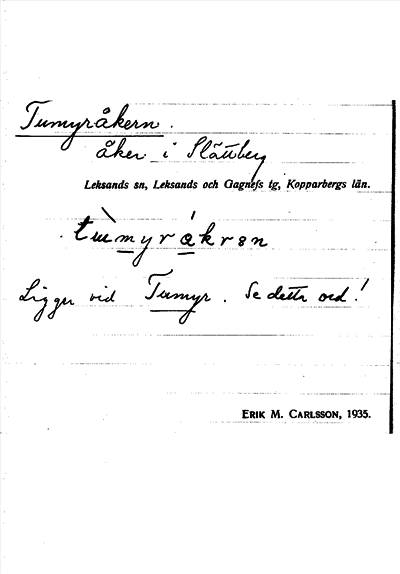 Tumyråkern.
åker i Slättberg
Leksands sn, Leksands och Gagnefs tg, Kopparbergs län.
tùmyrákrən
Ligger vid Tumyr. Se detta ord!
ERIK M. CARLSSON, 1935.